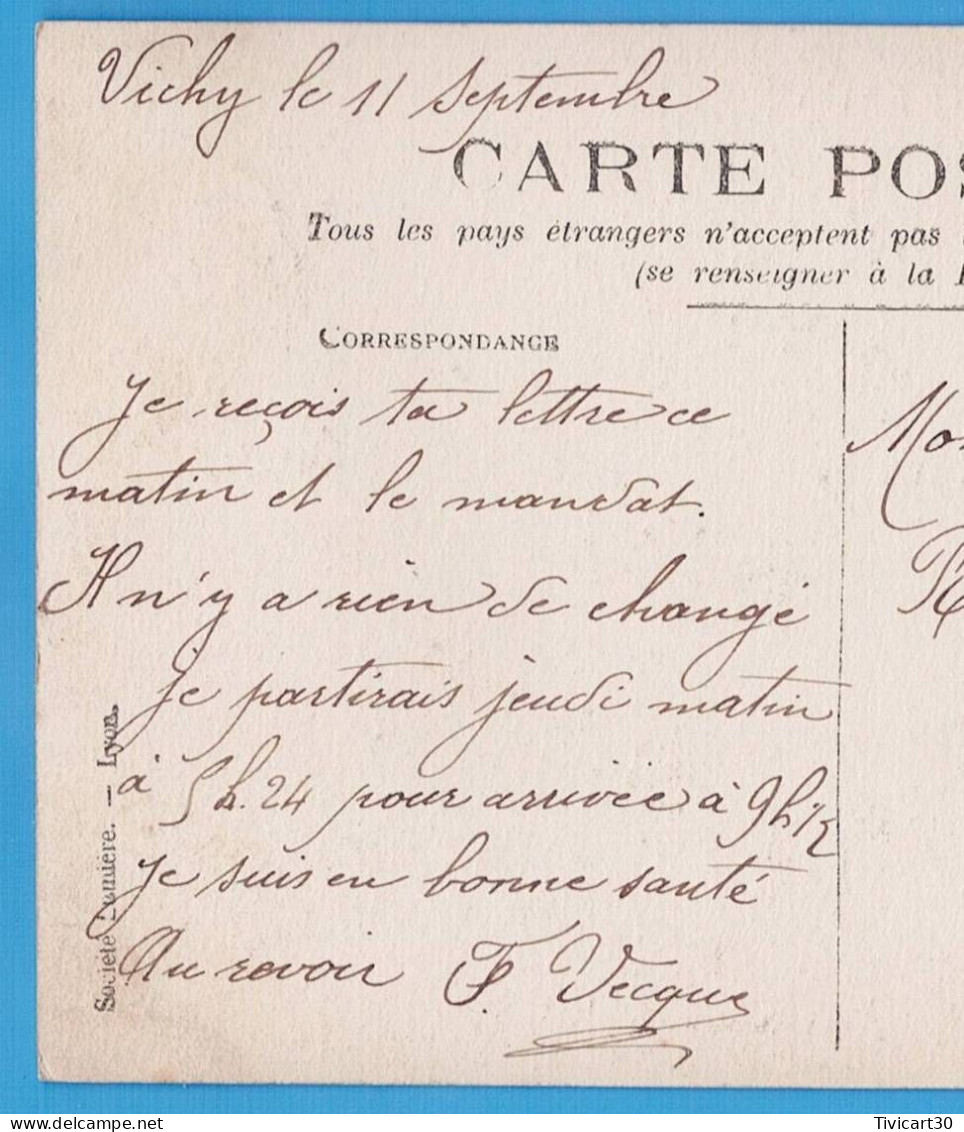 Vichy le 11 Septembre
CARTE POS
Tous les pays étrangers n'acceptent pas
(se renseigner à la
CORRESPONDANCE
Je reçois ta lettre ce
matin et le mandat.
Il n'y a rien de changé
Je partirais jeudi matin
à 5h.24 pour arrivée à 9h 1/2
Je suis en bonne santé
Au revoir F. Vecque
Mon
Société Lumière. — Lyon.
Tivicart30